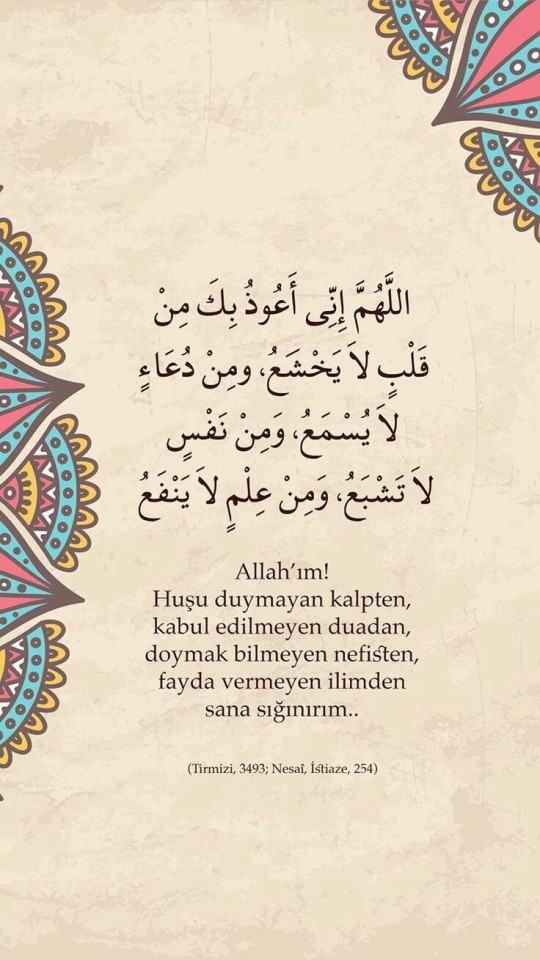 اللَّهُمَّ إِنِّى أَعُوذُ بِكَ مِنْ
قَلْبٍ لاَ يَخْشَعُ، ومِنْ دُعَاءٍ
لاَ يُسْمَعُ، وَمِنْ نَفْسٍ
لاَ تَشْبَعُ، وَمِنْ عِلْمٍ لاَ يَنْفَعُ
Allah’ım!
Huşu duymayan kalpten,
kabul edilmeyen duadan,
doymak bilmeyen nefisten,
fayda vermeyen ilimden
sana sığınırım..
(Tirmizi, 3493; Nesaî, İstiaze, 254)